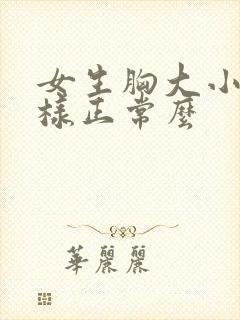 女生胸大小
樣正常麼
華麗麗